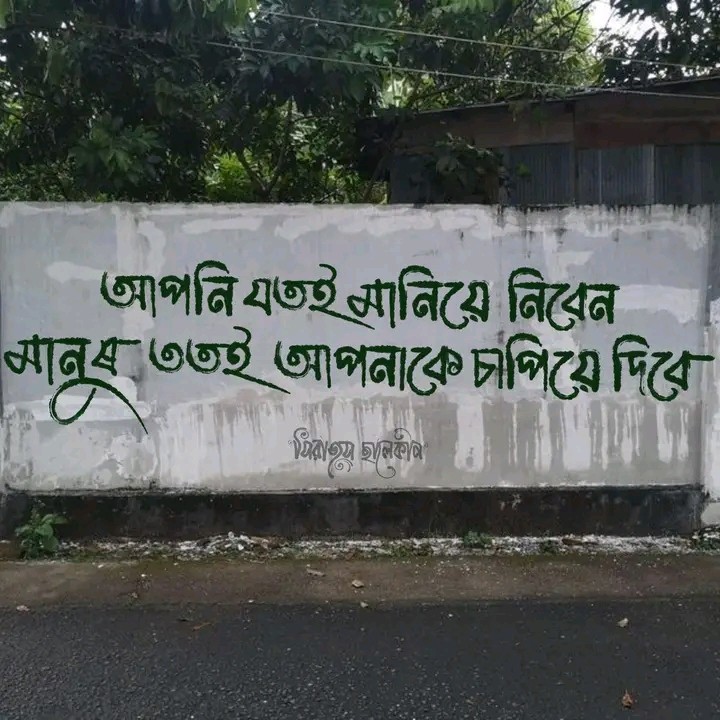 আপনি যতই মানিয়ে নিবেন
মানুষ ততই আপনাকে চাপিয়ে দিবে
"সিরাতুম ছালেকীন"